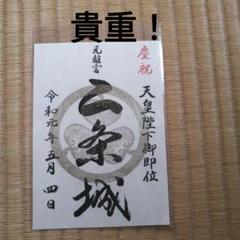 貴重！
慶祝
天皇陛下御即位
元離宮
二条城
令和元年五月四日